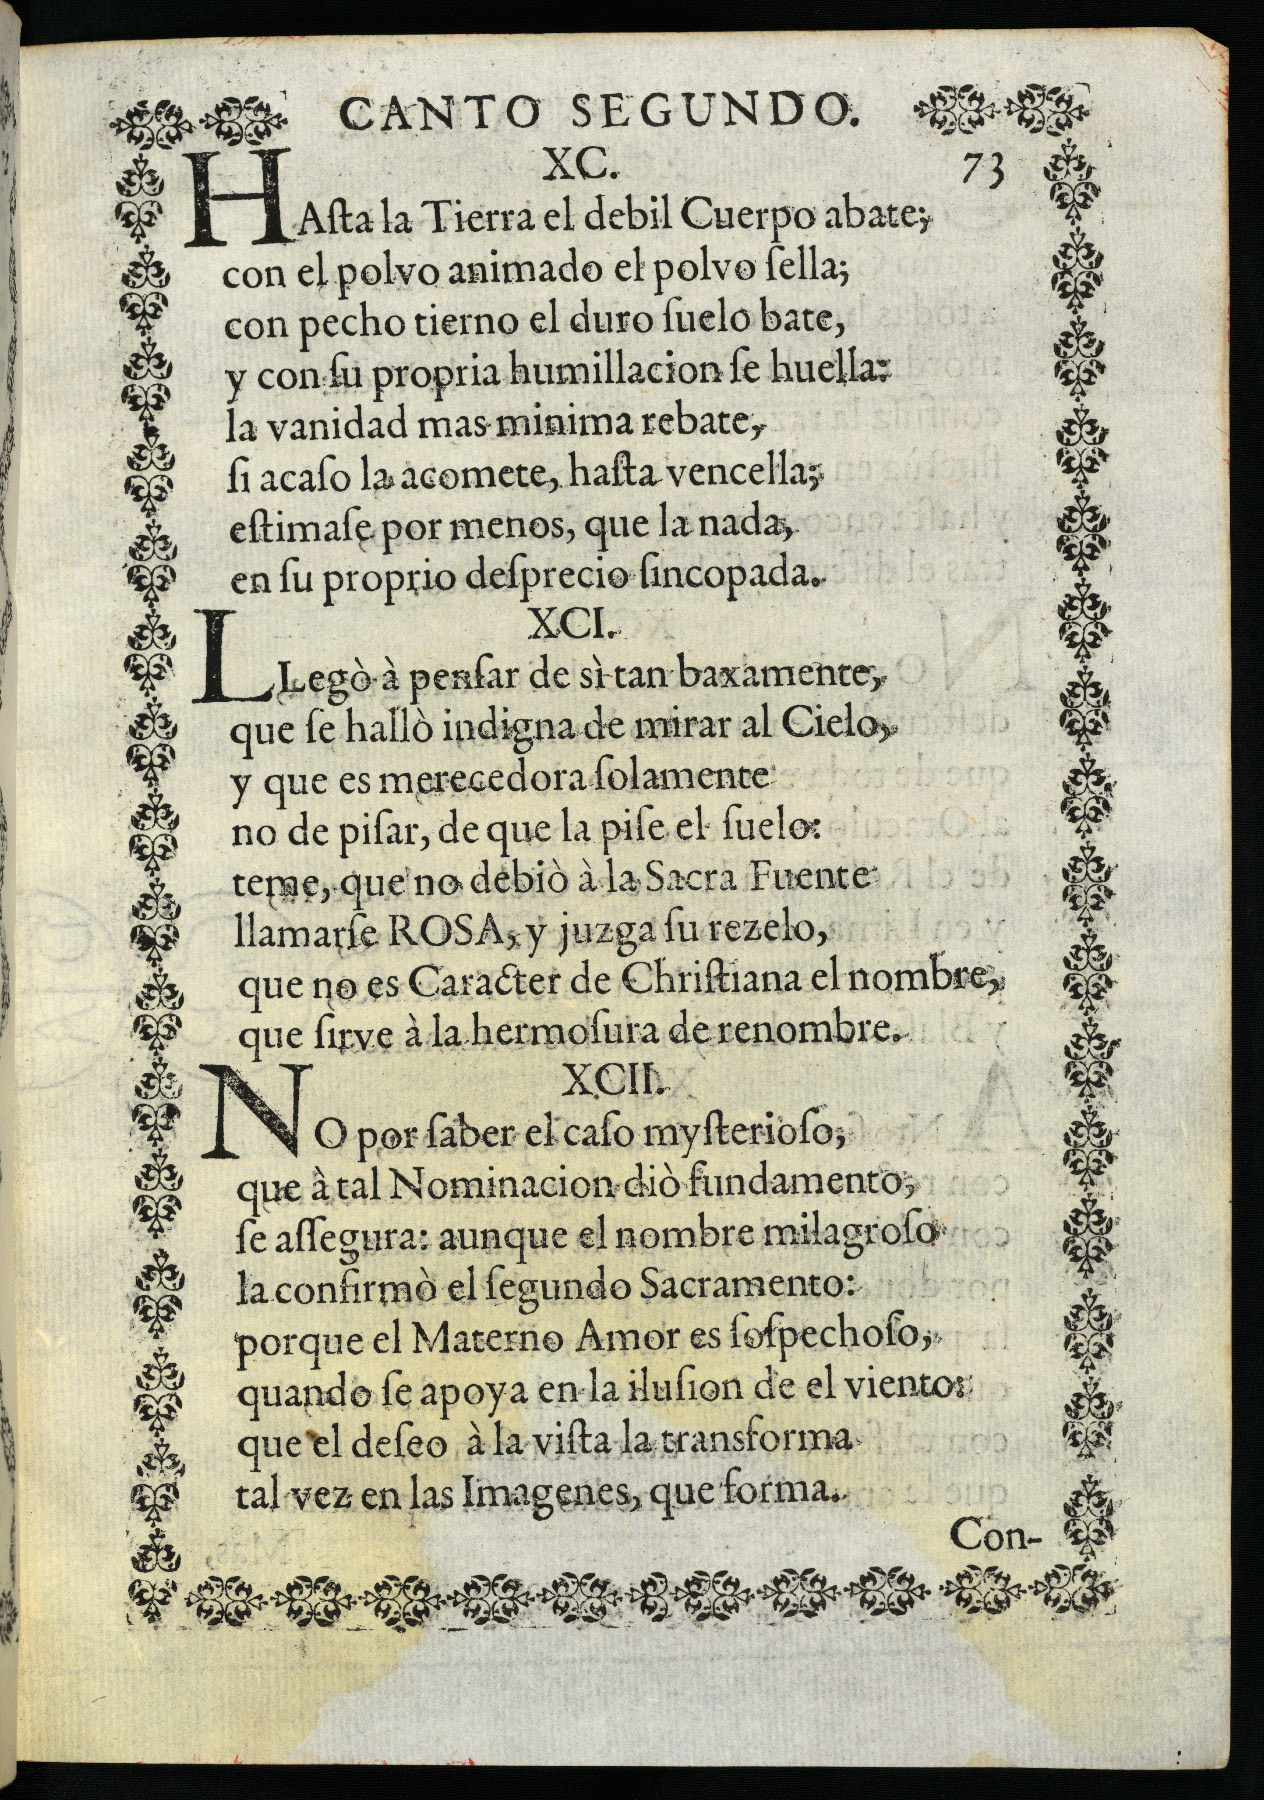 CANTO SEGUNDO.
XC. 73
HAſta la Tierra el debil Cuerpo abate;
con el polvo animado el polvo ſella;
con pecho tierno el duro ſuelo bate,
y con ſu propria humillacion ſe huella:
la vanidad mas minima rebate,
ſi acaſo la acomete, haſta vencella;
eſtimaſe por menos, que la nada,
en ſu proprio deſprecio ſincopada.
XCI.
LLegò à penſar de sì tan baxamente,
que ſe hallò indigna de mirar al Cielo,
y que es merecedora ſolamente
no de piſar, de que la piſe el ſuelo:
teme, que no debiò à la Sacra Fuente
llamarſe ROSA, y juzga ſu rezelo,
que no es Caracter de Chriſtiana el nombre,
que ſirve à la hermoſura de renombre.
XCII.
NO por ſaber el caſo myſterioſo,
que à tal Nominacion diò fundamento,
ſe aſſegura: aunque el nombre milagroſo
la confirmò el ſegundo Sacramento:
porque el Materno Amor es ſoſpechoſo,
quando ſe apoya en la iluſion de el viento:
que el deſeo à la viſta la transforma
tal vez en las Imagenes, que forma.
Con-